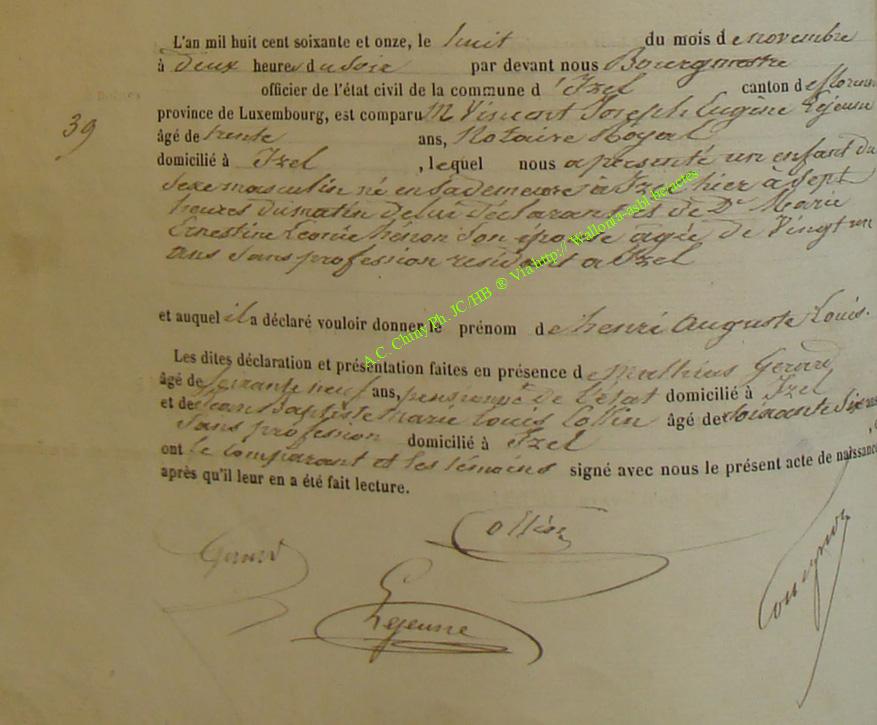 L'an mil huit cent soixante et onze, le huit du mois de novembre
à deux heures du Soir par devant nous Bourgmestre
officier de l'état civil de la commune d'Izel canton de Floren
39
province de Luxembourg, est comparu M Vincent Joseph Eugène Lejeune
âgé de trente ans, Notaire Royal
domicilié à Izel, lequel nous a présenté un enfant du
Sexe masculin né en sa demeure à Izel hier à Sept
heures du matin de lui déclarant et de De Marie
Ernestine Léonie hénon Son épouse agée de Vingt un
ans Sans profession résidant à Izel
A.C. Chiny Ph. JC/HB ® Via http://Wallonia-asbl.be/actes
et auquel il a déclaré vouloir donner le prénom de henri Auguste Louis.
Les dites déclaration et présentation faites en présence de Mathius Gerard
âgé de Soixante neuf ans, pensionné de l'état domicilié à Izel
et de Jean Baptiste Marie Louis Collin âgé de Soixante Six ans
Sans profession domicilié à Izel
ont le Comparant et les témoins signé avec nous le présent acte de naissance
après qu'il leur en a été fait lecture.
Collin
Gerard
Lejeune